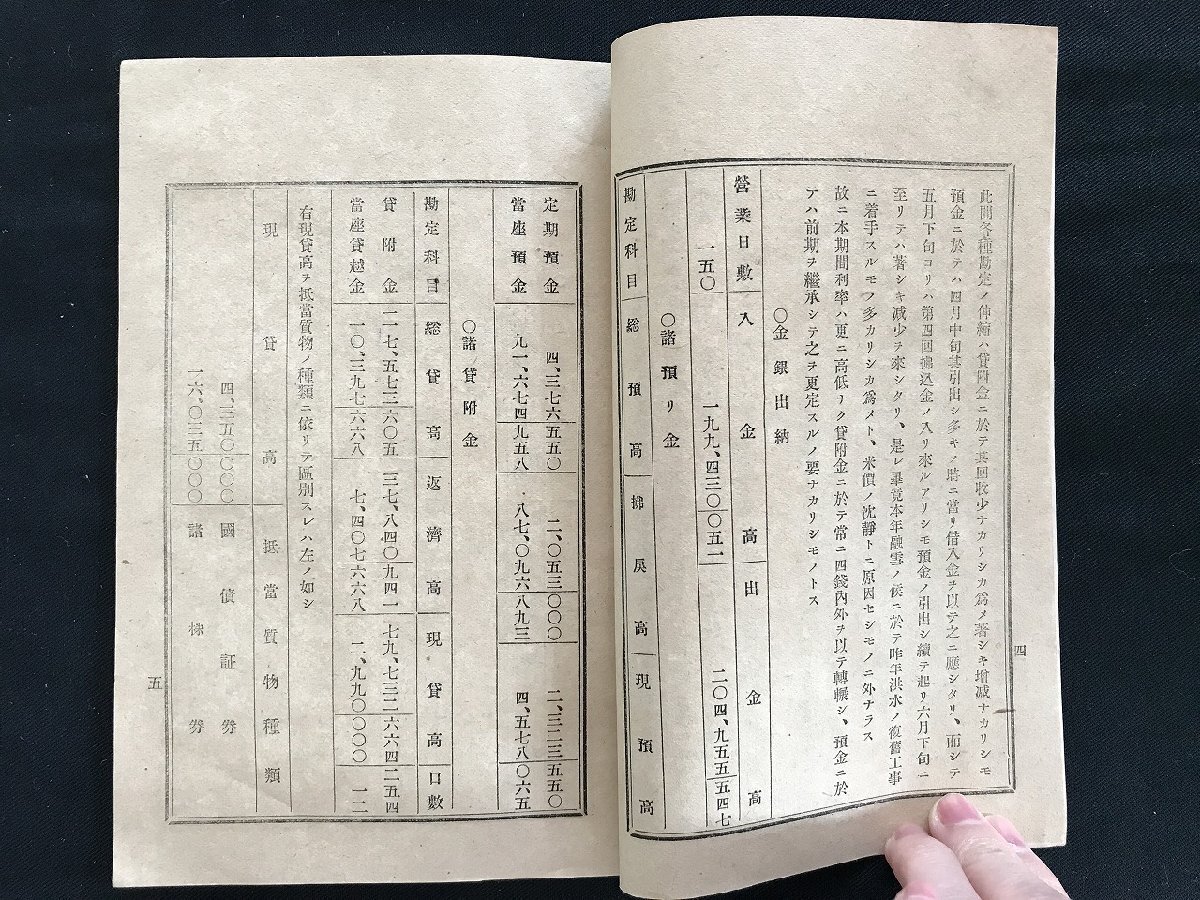 此間各種勘定ノ伸縮ハ貸附金ニ於テ其回收少ナカリシカ爲メ著シキ增减ナカリシモ
預金ニ於テハ四月中旬其引出シ多キノ時ニ當リ借入金ヲ以テ之ニ應シタリ、而シテ
五月下旬コリハ第四回拂込金ノ入リ來ルアリシモ預金ノ引出シ續テ起リ六月下旬ニ
至リテハ著シキ减少ヲ來シタリ、是レ畢竟本年融雪ノ候ニ於テ昨年洪水ノ復舊工事
ニ着手スルモノ多カリシカ爲メト、米價ノ沈靜トニ原因セシモノニ外ナラス
故ニ本期間利率ハ更ニ高低ナク貸附金ニ於テ常ニ四錢內外ヲ以テ轉輾シ、預金ニ於
テハ前期ヲ繼承シテ之ヲ更定スルノ要ナカリシモノトス
〇金銀出納
營業日數 入金高 出金高
一五〇 一九九、四三〇〇五一 二〇四、九五五五四七
〇諸預リ金
勘定科目 總預高 拂戾高 現預高
四
定期預金 四、三七六五五〇 二、〇五三〇〇〇 二、三二三五五〇
當座預金 九一、六七四九五八 八七、〇九六八九三 四、五七八〇六五
〇諸貸附金
勘定科目 總貸高 返濟高 現貸高 口數
貸附金 一一七、五七三六〇五 三七、八四〇九四一 七九、七三二六六四 二五四
當座貸越金 一〇、三九七六六八 七、四〇七六六八 二、九九〇〇〇〇 一二
右現貸高ヲ抵當質物ノ種類ニ依リテ區別スレハ左ノ如シ
現貸高 抵當質物種類
四、三五〇〇〇〇 國債証券
一六、〇三五〇〇〇 諸株券
五